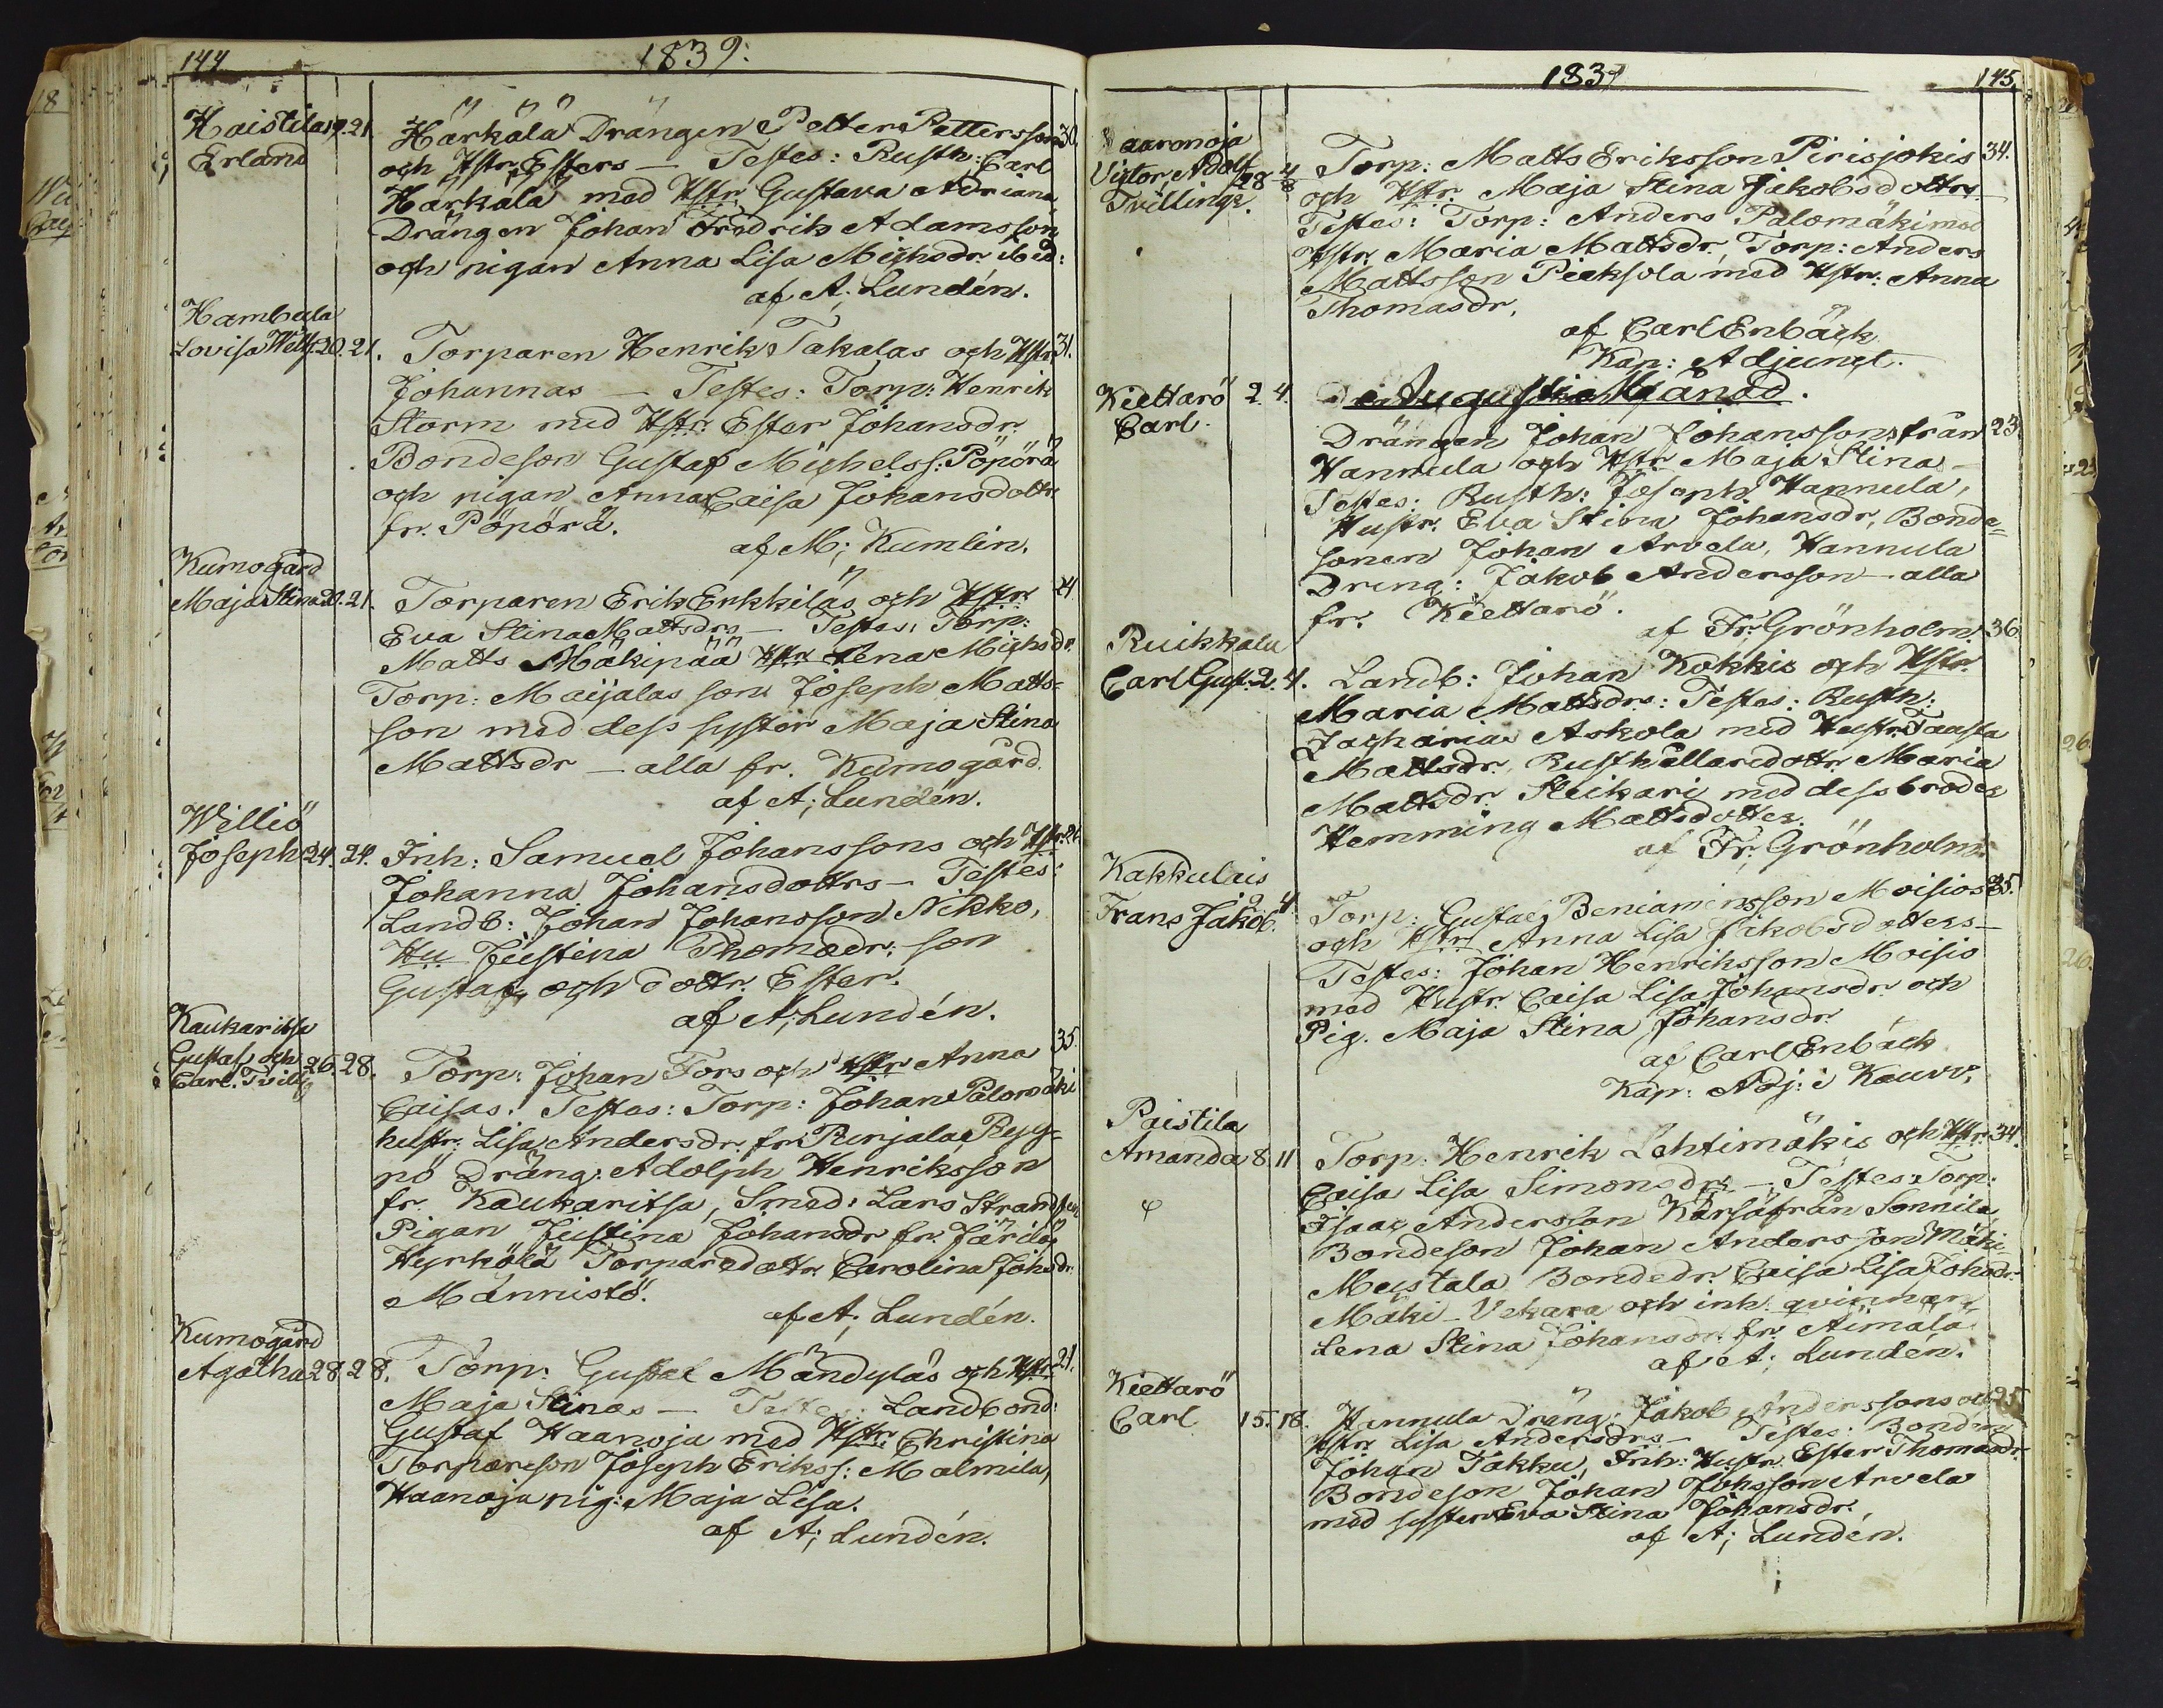 144
1839.
Haistila 19. 21. Härkälä Drängen Petter Pettersson 30.
Erland och Hstr. Esters — Testes: Rusth: Carl
Härkälä med Hstr. Gustava Adriana,
Drängen Johan Fredrik Adamsson
och pigan Anna Lisa Michsdr. ibid:
af A; Lundén.
Hambula
Lovisa Wilh: 20. 21. Torparen Henrik Takalas och Hstr. 31.
Johannas — Testes: Torp: Henrik
Storm med Hstr. Ester Johansdr.
Bondeson Gustaf Michelss: Pöpörä
och pigan Anna Caisa Johansdottr.
fr. Pöpörä.
af M; Kumlin.
Kumogård
Maja Stina 20. 21. Torparen Erik Erkkiläs och Hstr. 24
Eva Stina Mattsdrs — Testes: Torp:
Matts Mäkipää Hstr. Lena Michsdr.
Torp: Maijalas son Joseph Matts=
son med dess syster Maja Stina
Mattsdr — alla fr. Kumogård.
af A; Lundén.
Williö
Joseph 24. 24. Inh: Samuel Johanssons och Hstr. 21.
Johanna Johansdottrs — Testes:
Landb: Johan Johansson Nikko,
Hu Justina Thomædr: son
Gustaf, och dottr. Ester.
af A; Lundén.
Kaukaritsa
Gustaf och 26. 28. Torp: Johan Fors och Hstr Anna 35.
Carl. Tvill.
Caisas. Testes: Torp: Johan Palomäki
hustr. Lisa Andersdr. fr. Purjala, Pyy=
pö Dräng: Adolph Henriksson
fr. Kaukaritsa, Smed: Lars Strandsten
Pigan Justina Johansdr fr. Järilä,
Hyrkölä Torparedottr. Carolina Johsdr.
Männistö.
af A; Lundén.
Kumogård
Agatha 28 28. Torp: Gustaf Mändyläs och Hstr. 21.
Maja Stinas — Testes: Landbond:
Gustaf Haanoja med Hstr. Christina
Torpareson Joseph Erikss: Malmila,
Haanoja pig: Maja Lisa.
af A; Lundén.
1839
145
Haaronoja
Victor Adolf 28 4/8 Torp: Matts Eriksson Pirisjokis 34.
Tvillingr. och Hstr. Maja Stina Jakobsdottrs
Testes: Torp: Anders Palomäki med
Hstr. Maria Mattsdr. Torp: Anders
Mattsson Pieksola med Hstr: Anna
Thomasdr.
af Carl Enbäck
Kap: Adjunct.
Augusti Månad.
Kiettarö 2. 4.
Carl. Drängen Johan Johanssons från 23.
Hannula och Hstr Maja Stina —
Testes: Rusth: Joseph Hannula,
Hustr. Eva Stina Johansdr, Bonde=
sonen Johan Arvela, Hannula
Dreng: Jakob Andersson — alla
fr. Kiettarö.
af Fr. Grönholm.
Ruikkala 36
Carl Gust. 2. 4. Landb: Johan Kokkis och Hstr
Maria Mattsdrs: Testes: Rusth:
Zacharias Askola med Hustr. Fausta
Mattsdr. Rusthållaredottr. Maria
Mattsdr. Steikari med dess broder
Hemming Mattsdotter.
af Fr. Grönholm.
Kakkulais
Frans Jakob. 2 4. Torp: Gustaf Beniaminsson Moisios 35.
och Hstr Anna Lisa Jakobsdotters —
Testes: Johan Henriksson Moisio
med Hustr. Caisa Lisa Johansdr. och
Pig. Maja Stina Johansdr.
af Carl Enbäck
Kap: Adj: i Kauv.
Paistila
Amanda 8 11 Torp: Henrik Lehtimäkis och Hstr. 34.
Caisa Lisa Simonsdrs — Testes: Torp:
Isaac Andersson Karsä från Sonnila
Bondeson Johan Andersson Mäki-
Meistala Bondedr. Caisa Lisa Johsdr.
Mäki-Vekara och inh. qvinnan
Lena Stina Johansdr. fr. Aimälä
af A; Lundén.
Kiettarö
Carl 15. 18. Hannula Dräng: Jakob Anderssons och 25
Hstr. Lisa Andersdrs — Testes: Bonden
Johan Takku, Inh: Hustr. Ester Thomasdr.
Bondeson Johan Johsson Arvela
med syster Eva Stina Johansdr.
af A; Lundén.